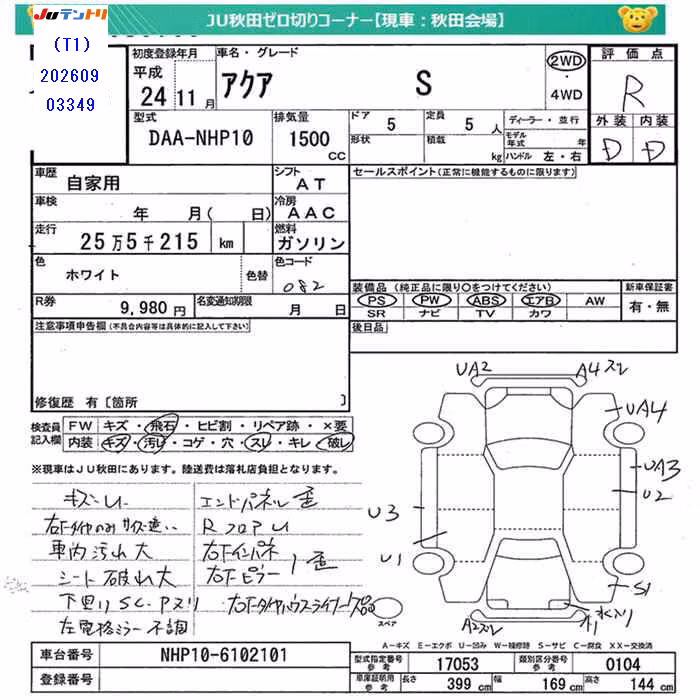 JUテントリ
JU秋田ゼロ切りコーナー【現車：秋田会場】
(T1)
202609
03349
初度登録年月
平成
24 11月
車名・グレード
アクア S
2WD
・
4WD
評価点
R
外装 内装
D D
型式
DAA-NHP10
排気量
1500
CC
ドア 5
形状
定員 5 人
積載 kg
ディーラー・並行
モデル年式 年
ハンドル 左・右
車歴 自家用
シフト AT
車検 年 月( 日)
冷房 AAC
走行 25万5千215 km
燃料 ガソリン
色 ホワイト 色替
色コード 082
R券 9,980円
名変通知期限 月 日
セールスポイント(正常に機能するものに限ります)
装備品 (純正品に限り○をつけてください)
新車保証書
PS PW ABS エアB AW
有・無
SR ナビ TV カワ
後日品
注意事項申告欄(不具合内容等は具体的に記入して下さい)
修復歴 有 [箇所 ]
検査員記入欄
FW キズ・飛石・ヒビ割・リペア跡・×要
内装 キズ・汚れ・コゲ・穴・スレ・キレ・破れ
※現車はJU秋田にあります。陸送費は落札店負担となります。
キズ・U
右下タイヤのみサイズ違い
車内汚れ大
シート破れ大
下回りSC・Pスリ
左電格ミラー不調
エンドパネル歪
RフロアU
右下インパネ
右下ピラー
歪
右下タイヤハウスライナー欠品
UA2
A4 スレ
UA4
UA3
U2
U3
U1
S1
A2スレ
スペア
A－キズ E－エクボ U－凹み W－補修跡 S－サビ C－腐食 XX－交換済
車台番号 NHP10-6102101
登録番号
型式指定番号 参考 17053
類別区分番号 参考 0104
車庫証明用 参考
長さ 399 cm
幅 169 cm
高さ 144 cm